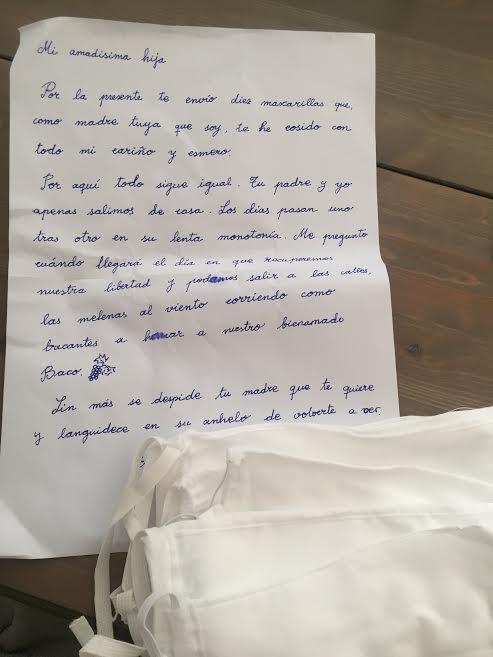 Mi amadísima hija
Por la presente te envío diez mascarillas que,
como madre tuya que soy, te he cosido con
todo mi cariño y esmero.
Por aquí todo sigue igual. Tu padre y yo
apenas salimos de casa. Los días pasan uno
tras otro en su lenta monotonía. Me pregunto
cuándo llegará el día en que recuperemos
nuestra libertad y podamos salir a las calles,
las melenas al viento corriendo como
bacantes a honrar a nuestro bienamado
Baco.
Sin más se despide tu madre que te quiere
y languidece en su anhelo de volverte a ver.